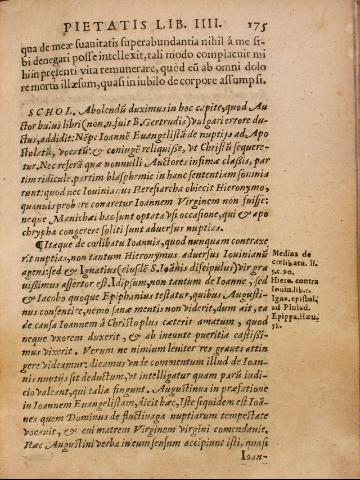 PIETATIS LIB. IIII. 175
qua de meæ suauitatis superabundantia nihil á me si-
bi denegari posse intellexit, tali modo complacuit mi
hi in presenti vita remunerare, quòd eũ ab omni dolo
re mortis illæsum, quasi in iubilo de corpore assumpsi.
SCHOL. Abolendũ duximus in hoc capite, quod Au
ctor huius libri (non.n.fuit B. Gertrudus) vulgari errore du-
ctus, addidit: Nẽpe Ioannẽ Euangelistã de nuptijs ad Apo
stolatũ, vocatũ: & coniugẽ reliquisse, vt Christũ sequere-
tur. Nec referã quæ nonnulli Auctores infimæ classis, par
tim ridicule, partim blaspheme in hanc sententiam somnia
runt: quod nec Iouinianus Heresiarcha obiecit Hieronymo,
quamuis probare conaretur Ioannem Virginem non fuisse:
neque Manichæi hac sunt optata vsi occasione, qui & apo
chrypha congerere soliti sunt aduersus nuptias.
¶ Itaque de cœlibatu Ioannis, quod nunquam contraxe
rit nuptias, non tantum Hieronymus aduersus Iouinianũ
agens: sed & Ignatius (eiusdẽ S. Ioãnis discipulus) vir gra
uissimus assertor est. Idipsum, non tantum de Ioanne, sed
& Iacobo quoque Epiphanius testatur, quibus Augusti-
nus consentire, nemo sanæ mentis non viderit, dum ait, ea
de causa Ioannem à Christo plus cæteris amatum, quod
neque vxorem duxerit, & ab ineunte pueritia castissi-
mus vixerit. Verum ne nimium leuiter res graues attin
gere videamur, dicamus vnde commentum illud de Ioan-
nis nuptijs sit deductum, vt intelligatur quam parũ iudi-
cio valeant, qui talia fingunt. Augustinus in præfatione
in Ioannem Euangelistam, dicit hæc, Iste siquidem est Ioã-
nes quem Dominus de fluctiuaga nuptiarum tempestate
vocauit, & cui matrem Virginem virgini comendauit.
Hæc Augustini verba in eum sensum accipiunt isti, quasi
Ioan-
Medina de
cœlibatu. li.
5.c.90.
Hiero. contra
Iouin.lib.1.
Igna. epistol.
ad Philad.
Epipha. Hæres.
58.